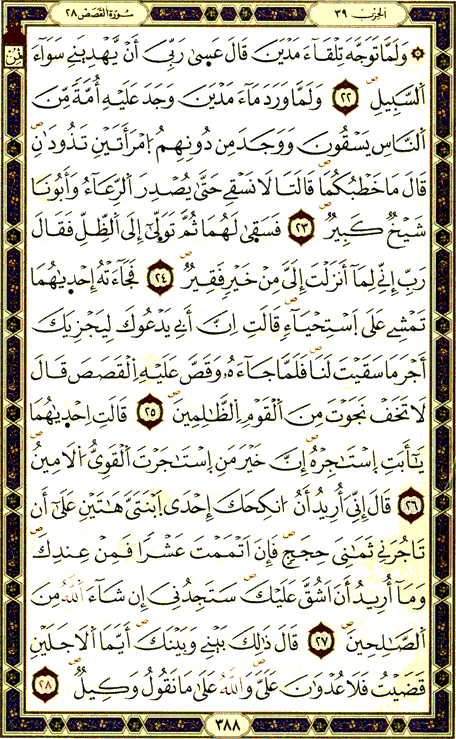 سُورَةُ القَصَص ٢٨ الحزب ٣٩
ثمن
۞ وَلَمَّا تَوَجَّهَ تِلْقَآءَ مَدْيَنَ قَالَ عَسىٰ رَبِّىَ أَنْ يَّهْدِيَنِے سَوَآءَ
اَلسَّبِيلِ ٢٢ وَلَمَّا وَرَدَ مَآءَ مَدْيَنَ وَجَدَ عَلَيْهِ أُمَّةً مِّنَ
اَلنَّاسِ يَسْقُونَ وَوَجَدَ مِن دُونِهِمُ اِمْرَأَتَيْنِ تَذُودَانِ
قَالَ مَا خَطْبُكُمَا قَالَتَا لَا نَسْقِے حَتَّىٰ يُصْدِرَ اَلرِّعَآءُ وَأَبُونَا
شَيْخٌ كَبِيرٌ ٢٣ فَسَقىٰ لَهُمَا ثُمَّ تَوَلّىٰ إِلَى اَلظِّلِّ فَقَالَ
رَبِّ إِنِّے لِمَآ أَنزَلْتَ إِلَىَّ مِنْ خَيْرٍ فَقِيرٌ ٢٤ فَجَآءَتْهُ إِحْدٜيٰهُمَا
تَمْشِے عَلَى اَسْتِحْيَآءٍ قَالَتِ اِنَّ أَبِے يَدْعُوكَ لِيَجْزِيَكَ
أَجْرَ مَا سَقَيْتَ لَنَا فَلَمَّا جَآءَهُۥ وَقَصَّ عَلَيْهِ اِلْقَصَصَ قَالَ
لَا تَخَفْ نَجَوْتَ مِنَ اَلْقَوْمِ اِلظَّٰلِمِينَ ٢٥ قَالَتِ اِحْدٜيٰهُمَا
يَٰٓأَبَتِ اِسْتَٰجِرْهُ إِنَّ خَيْرَ مَنِ اِسْتَٰجَرْتَ اَلْقَوِىُّ اُلَامِينُ
٢٦ قَالَ إِنِّىَ أُرِيدُ أَنُ انكِحَكَ إِحْدَى اَبْنَتَىَّ هَٰتَيْنِ عَلَىٰٓ أَن
تَاجُرَنِے ثَمَٰنِىَ حِجَجٍ فَإِنَ اَتْمَمْتَ عَشْرًا فَمِنْ عِندِكَ
وَمَآ أُرِيدُ أَنَ اَشُقَّ عَلَيْكَ سَتَجِدُنِىَ إِن شَآءَ اَللَّهُ مِنَ
اَلصَّٰلِحِينَ ٢٧ قَالَ ذَٰلِكَ بَيْنِے وَبَيْنَكَ أَيَّمَا اَلَاجَلَيْنِ
قَضَيْتُ فَلَا عُدْوَٰنَ عَلَىَّ وَاللَّهُ عَلَىٰ مَا نَقُولُ وَكِيلٌ ٢٨
٣٨٨